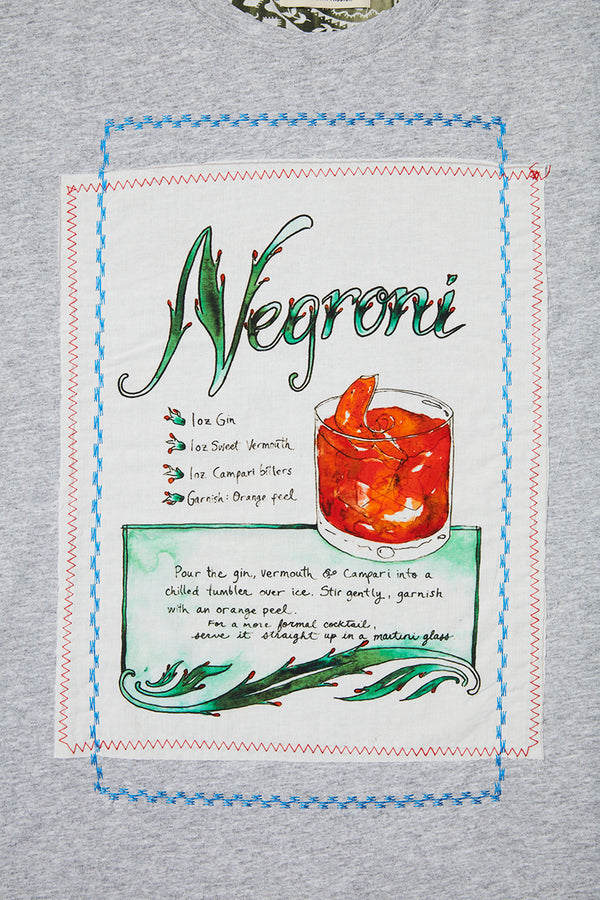 Negroni
1oz Gin
1oz Sweet Vermouth
1oz Campari bitters
Garnish: Orange peel
Pour the gin, vermouth & Campari into a
chilled tumbler over ice. Stir gently, garnish
with an orange peel.
For a more formal cocktail,
serve it straight up in a martini glass